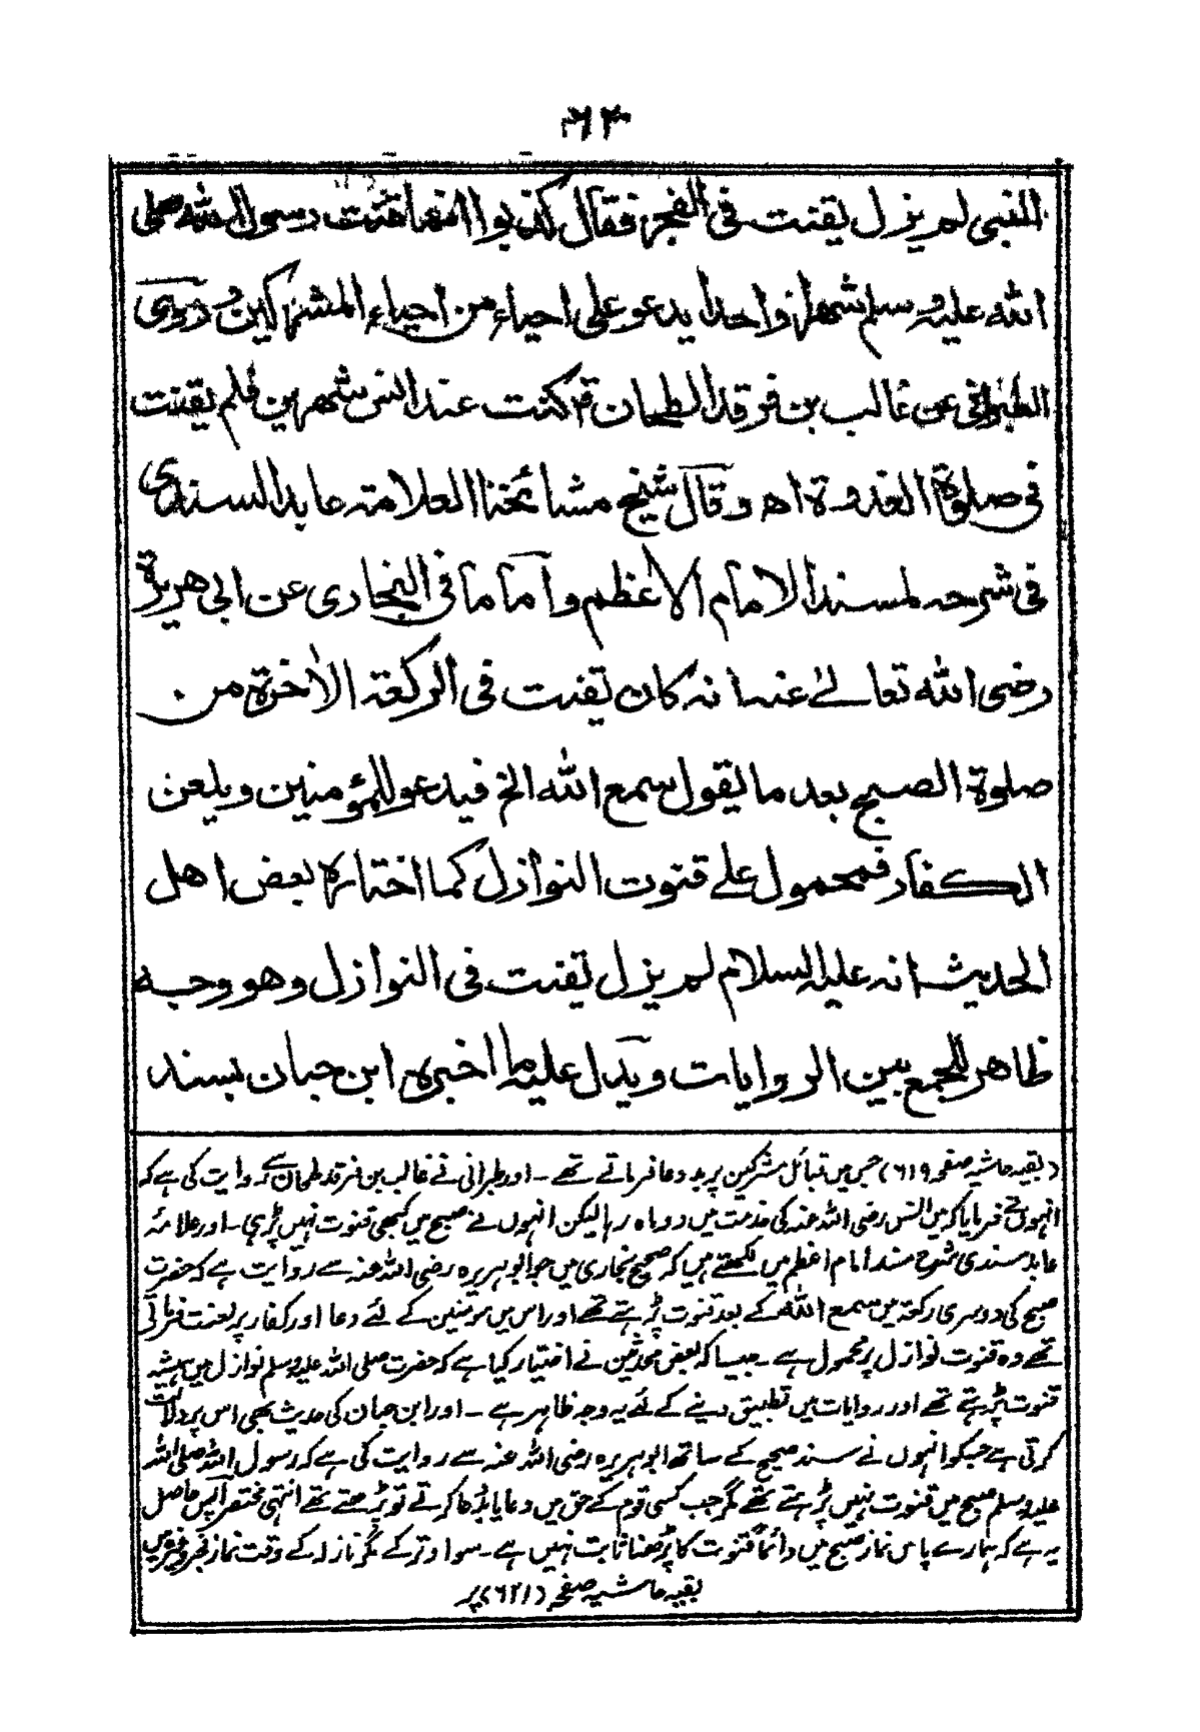 ۶۲۰
النبی لم یزل یقنت فی الفجر فقال کذبوا انما قنت رسول الله صلی
الله علیه وسلم شهرا واحدا یدعو علی احیاء من احیاء المشرکین وروی
الطبرانی عن غالب بن فرقد الطحان قال کنت عند انس شهرین فلم یقنت
فی صلوة الغدوة اه وقال شیخ مشائخنا العلامة عابد السندی
فی شرحه لمسند الامام الاعظم واما ما فی البخاری عن ابی هریرة
رضی الله تعالے عنه انه کان یقنت فی الرکعة الاخرة من
صلوة الصبح بعد ما یقول سمع الله الخ فیدعو للمؤمنین ویلعن
الکفار فمحمول علے قنوت النوازل کما اختاره بعض اهل
الحدیث انه علیه السلام لم یزل یقنت فی النوازل وهو وجه
ظاهر للجمع بین الروایات ویدل علیه ما اخبره ابن حبان بسند
(بقیہ حاشیہ صفحہ ۶۱۹) جس میں قبائل مشرکین پر بددعا فرماتے تھے ۔ اور طبرانی نے غالب بن فرقد طحان سے روایت کی ہے کہ
انہوں نے فرمایا کہ میں انس رضی اللہ عنہ کی خدمت میں دو ماہ رہا لیکن انہوں نے صبح میں کبھی قنوت نہیں پڑھی ۔ اور علامہ
عابد سندی شرح مسند امام اعظم میں لکھتے ہیں کہ صحیح بخاری میں جو ابو ہریرہ رضی اللہ عنہ سے روایت ہے کہ حضرت
صبح کی دوسری رکعت میں سمع اللہ کے بعد قنوت پڑہتے تھے اور اس میں مومنین کے لئے دعا اور کفار پر لعنت فرماتی
تھے وہ قنوت نوازل پر محمول ہے ۔ جیسا کہ بعض محدثین نے اختیار کیا ہے کہ حضرت صلی اللہ علیہ وسلم نوازل میں ہمیشہ
قنوت پڑہتے تھے اور روایات میں تطبیق دینے کے لئے یہ وجہ ظاہر ہے ۔ اور ابن حبان کی حدیث بھی اس پر دلالت
کرتی ہے جسکو انہوں نے سند صحیح کے ساتھ ابو ہریرہ رضی اللہ عنہ سے روایت کی ہے کہ رسول اللہ صلی اللہ
علیہ وسلم صبح میں قنوت نہیں پڑہتے تھے مگر جب کسی قوم کے حق میں دعا یا بددعا کرتے تو پڑھتے تھے انتہی مختصرا پس حاصل
یہ ہے کہ ہمارے پاس نماز صبح میں دائماً قنوت کا پڑھنا ثابت نہیں ہے ۔ سوا وتر کے مگر نازلہ کے وقت نماز فجر وغیرہ میں
بقیہ حاشیہ صفحہ (۶۲۱) پر